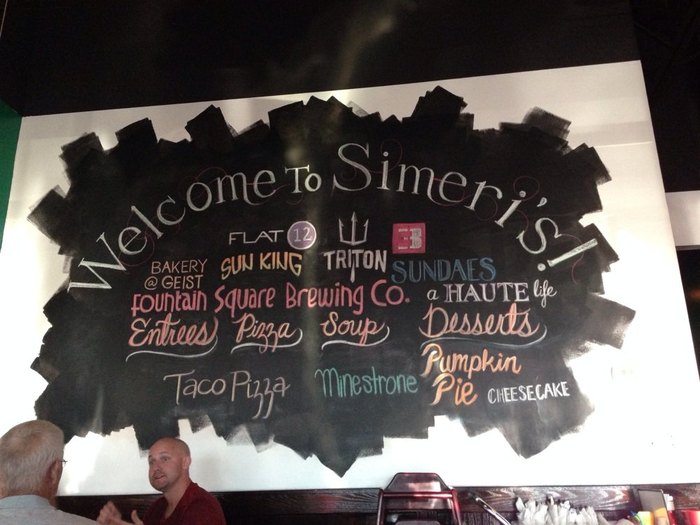 Welcome To Simeri's!
FLAT 12
B
BAKERY @ GEIST
SUN KING
TRITON
SUNDAES
Fountain Square Brewing Co.
a HAUTE life
Entrees
Pizza
Soup
Desserts
Taco Pizza
Minestrone
Pumpkin Pie
CHEESECAKE